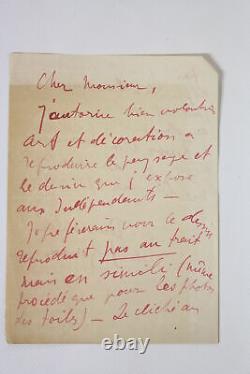 Cher Monsieur,
J'autorise bien volontiers
Art et décoration à
reproduire le paysage et
le dessin que j'expose
aux Indépendants —
Je préférerais voir le dessin
reproduit pas au trait
mais en simili (même
procédé que pour les photos
des toiles) — Le cliché au